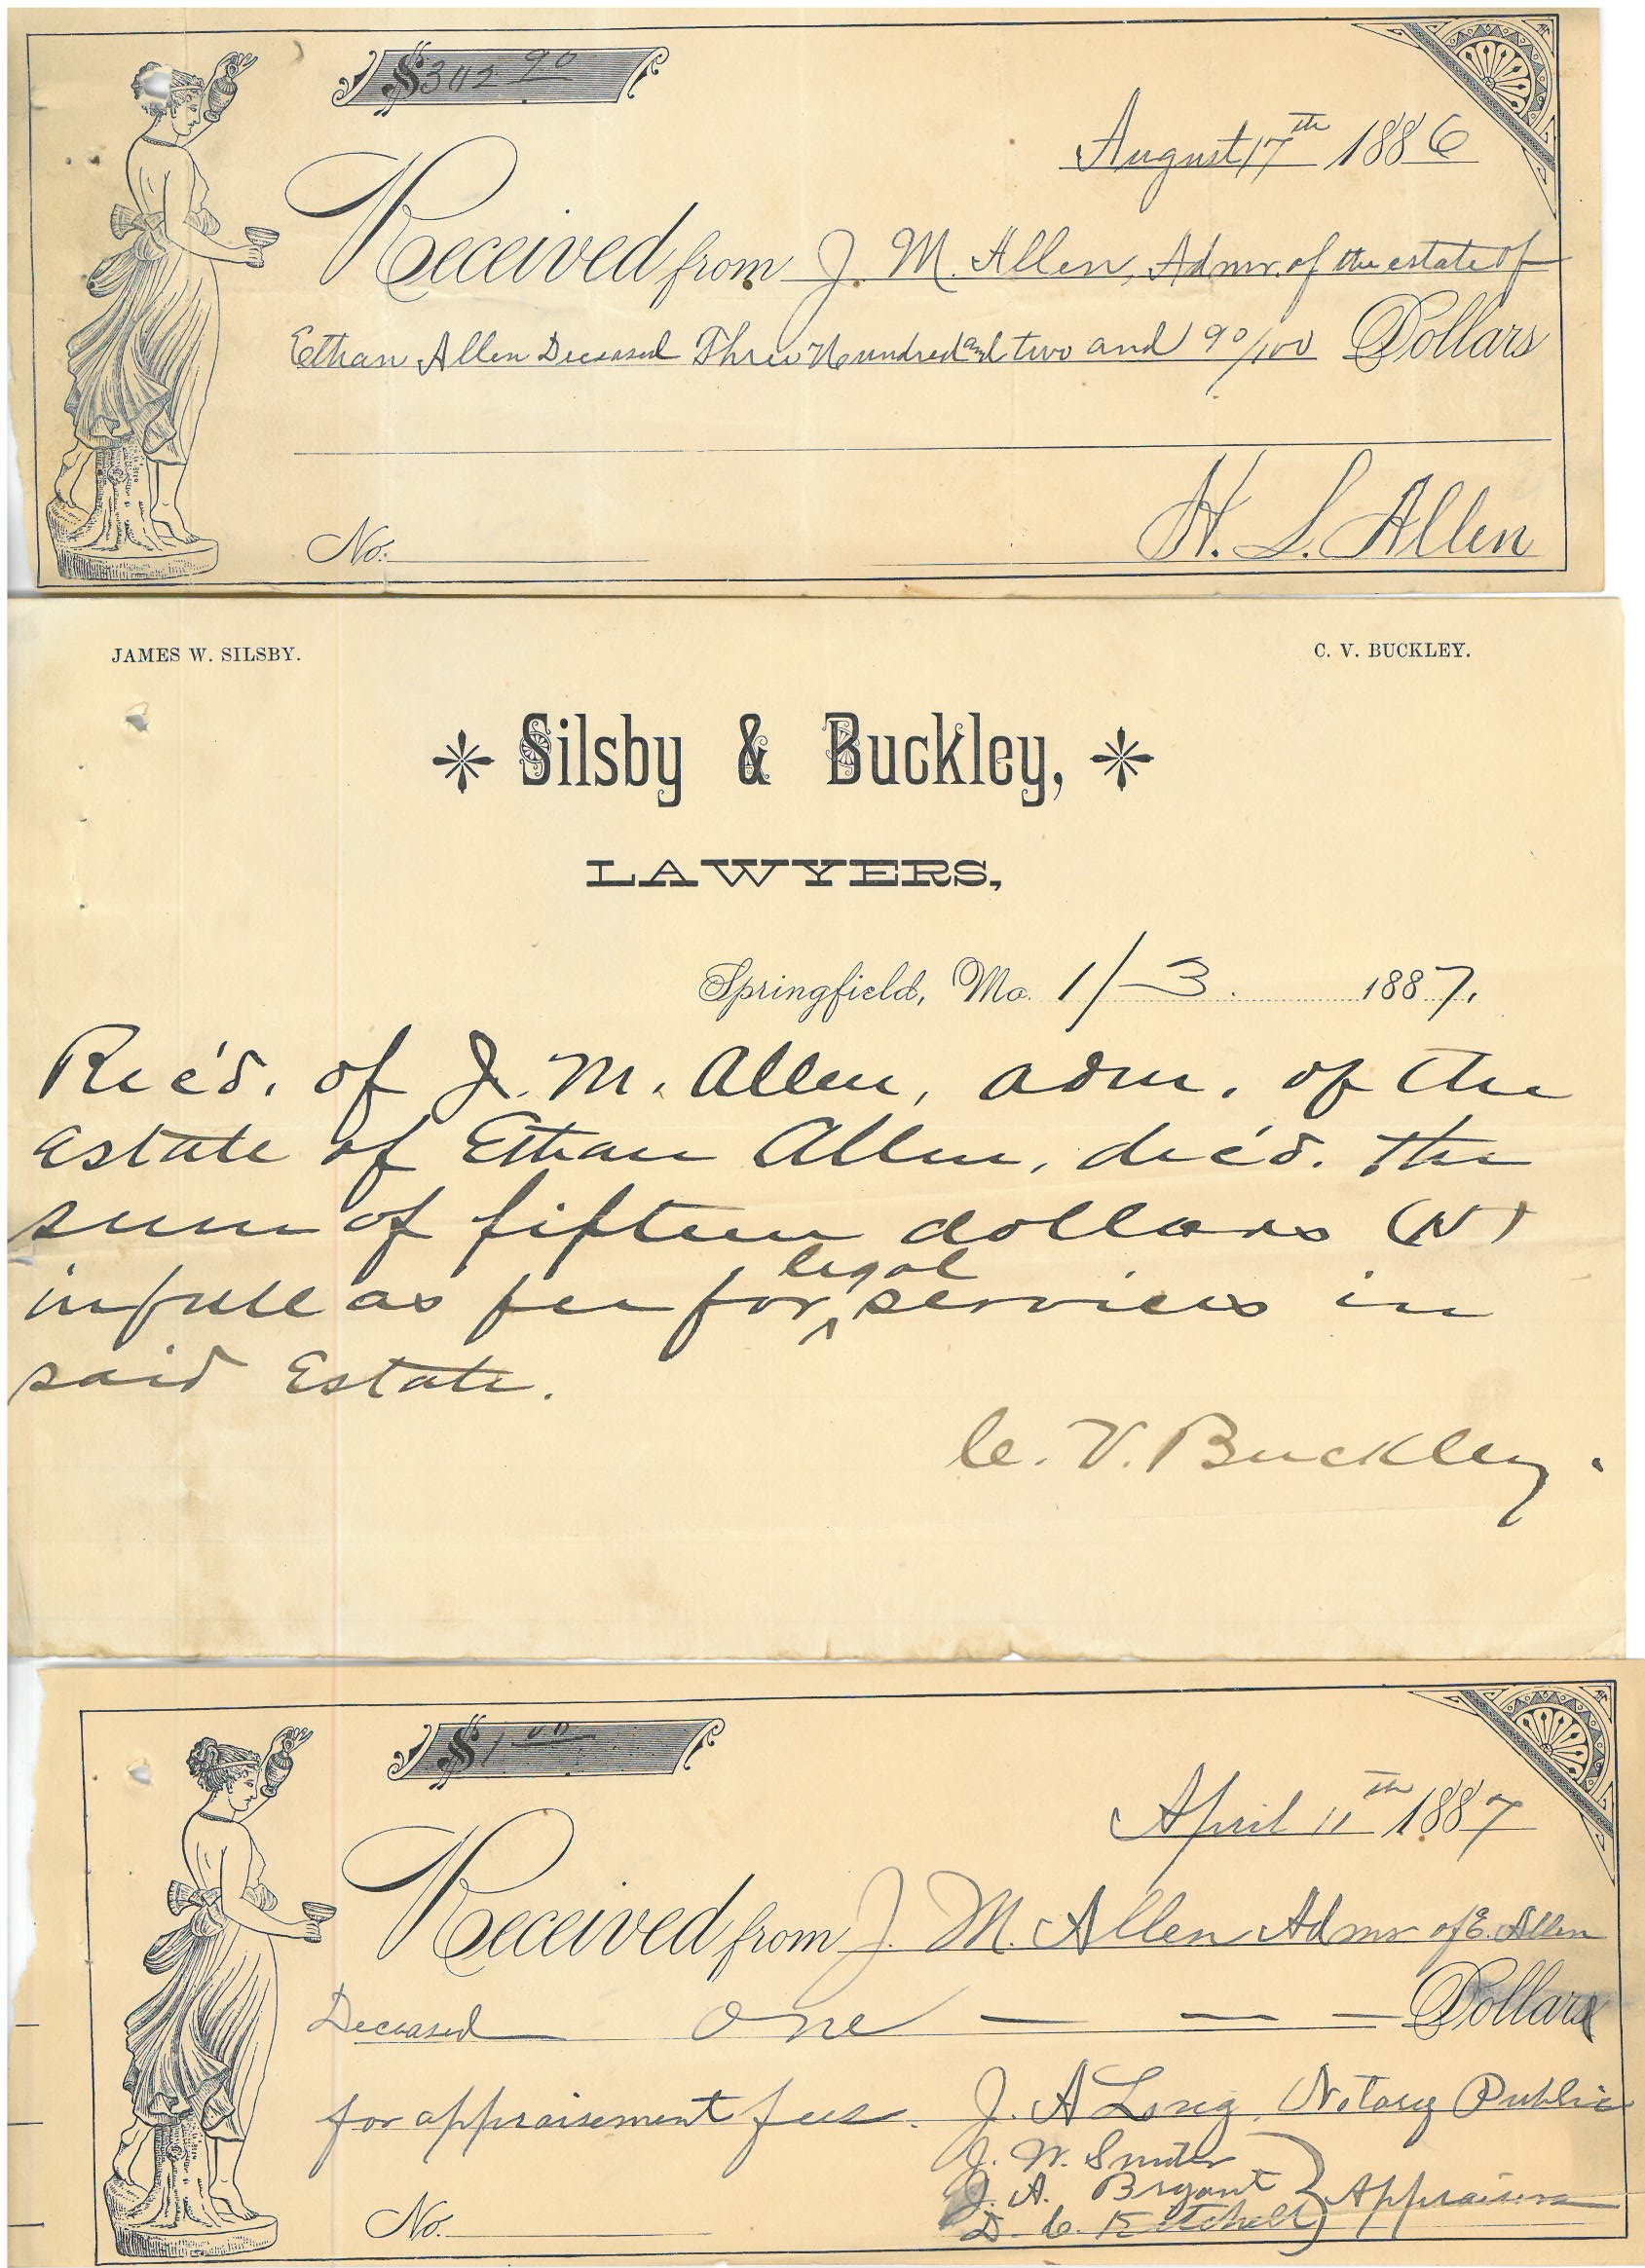 $302 90
August 17th 1886
Received from J. M. Allen, Admr. of the estate of
Ethan Allen Deceased Three Hundred and two and 90/100 Dollars
H. L. Allen
No.
JAMES W. SILSBY. C. V. BUCKLEY.
Silsby & Buckley,
LAWYERS,
Springfield, Mo. 1/3. 1887.
Rec'd. of J. M. Allen, adm. of the
estate of Ethan Allen, dec'd. the
sum of fifteen dollars
in full as fee for legal services in
said Estate.
C. V. Buckley.
$1 00
April 11th 1887
Received from J. M. Allen Admr of E. Allen
Deceased one Dollars
for appraisement fees. J. A Long, Notary Public
J. W.
J. A. Bryant Appraisers
D. C. Kitchell
No.